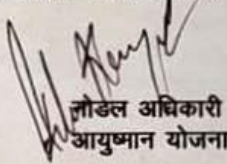 नोडल अधिकारी
आयुष्मान योजना